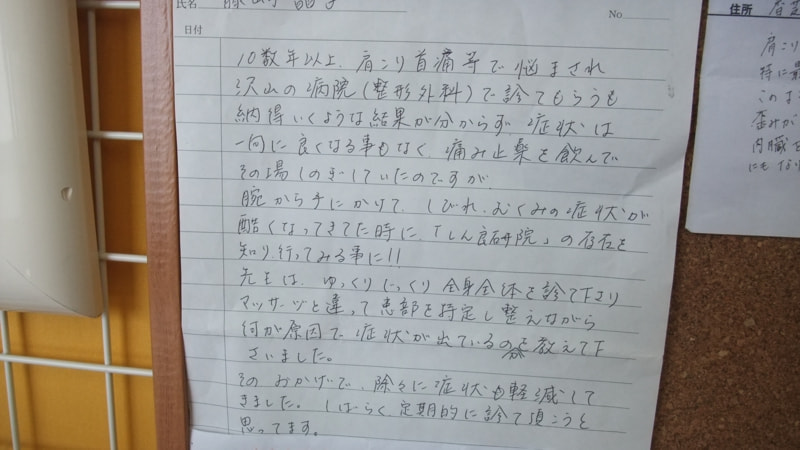 氏名
No
日付
10数年以上、肩こり首痛等で悩まされ
沢山の病院(整形外科)で診てもらうも
納得いくような結果が分からず、症状は
一向に良くなる事もなく、痛み止薬を飲んで
その場しのぎしていたのですが、
腕から手にかけて、しびれ、むくみの症状が
酷くなってきてた時に、「しん良研院」の存在を
知り、行ってみる事に!!
先生は、ゆっくりじっくり全身全体を診て下さり
マッサージと違って患部を特定し整えながら
何が原因で症状が出ているのか教えて下
さいました。
そのおかげで、除々に症状も軽減して
きました。しばらく定期的に診て頂こうと
思ってます。
住所
肩こり
特に最
このま
歪みが
内臓を
にもな